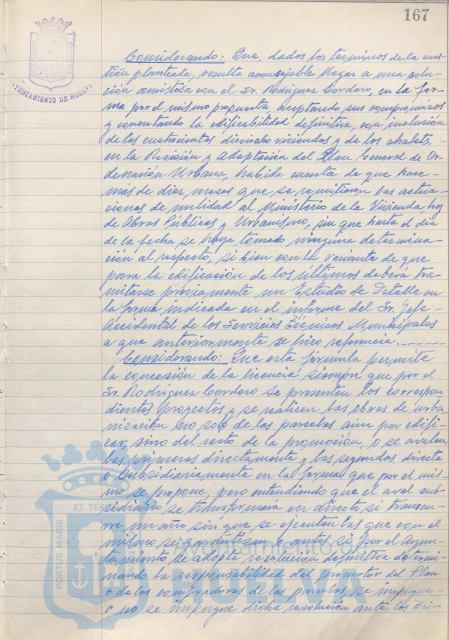 167
AYUNTAMIENTO DE HUELVA
Considerando: Que, dados los términos de la cues-
tión planteada, resulta aconsejable llegar a una solu-
ción amistosa con el Sr. Rodríguez Cordero, en la for-
ma por el mismo propuesta, aceptando sus compromisos
y concretando la edificabilidad definitiva, con inclusión
de las cuatrocientas dieciocho viviendas y de los chalets,
en la Revisión y Adaptación del Plan General de Or-
denación Urbana, habida cuenta de que hace
más de diez meses que se remitieron las actua-
ciones de nulidad al Ministerio de la Vivienda hoy
de Obras Públicas y Urbanismo, sin que hasta el día
de la fecha se haya tomado ninguna determina-
ción al respecto, si bien con la variante de que
para la edificación de los últimos deberá tra-
mitarse previamente un Estudio de Detalle en
la forma indicada en el informe del Sr. Jefe
Accidental de los Servicios Técnicos Municipales
a que anteriormente se hizo referencia.
Considerando: Que esta fórmula permite
la concesión de la licencia siempre que por el
Sr. Rodríguez Cordero se presenten los correspon-
dientes proyectos y se realicen las obras de urba
nización no solo de las parcelas aún por edifi-
car, sino del resto de la promoción, o se avalen
las primeras directamente y las segundas, directa
o subsidiariamente en la forma que por el mis-
mo se propone, pero entendiendo que el aval sub-
sidiario se transformaría en directo si transcu-
rre un año sin que se ejecuten las que con el
mismo se garantizan o antes si por el Ayun-
tamiento se adopta resolución definitiva determi-
nando la responsabilidad del promotor del Plan
o de los compradores de las parcelas se impugne
o no se impugne dicha resolución ante los Tri-
PORTUS MARIS
ET TERRAE
Ayuntamiento de